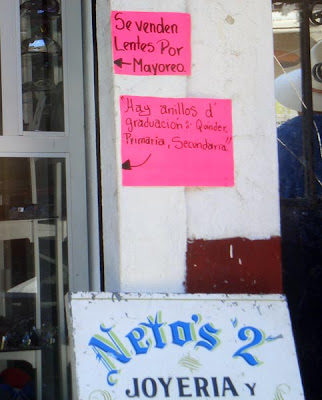 Se venden
Lentes Por
Mayoreo.
"Hay anillos d'
graduación": Quinder,
Primaria, Secundaria"
Neto's 2
JOYERIA Y